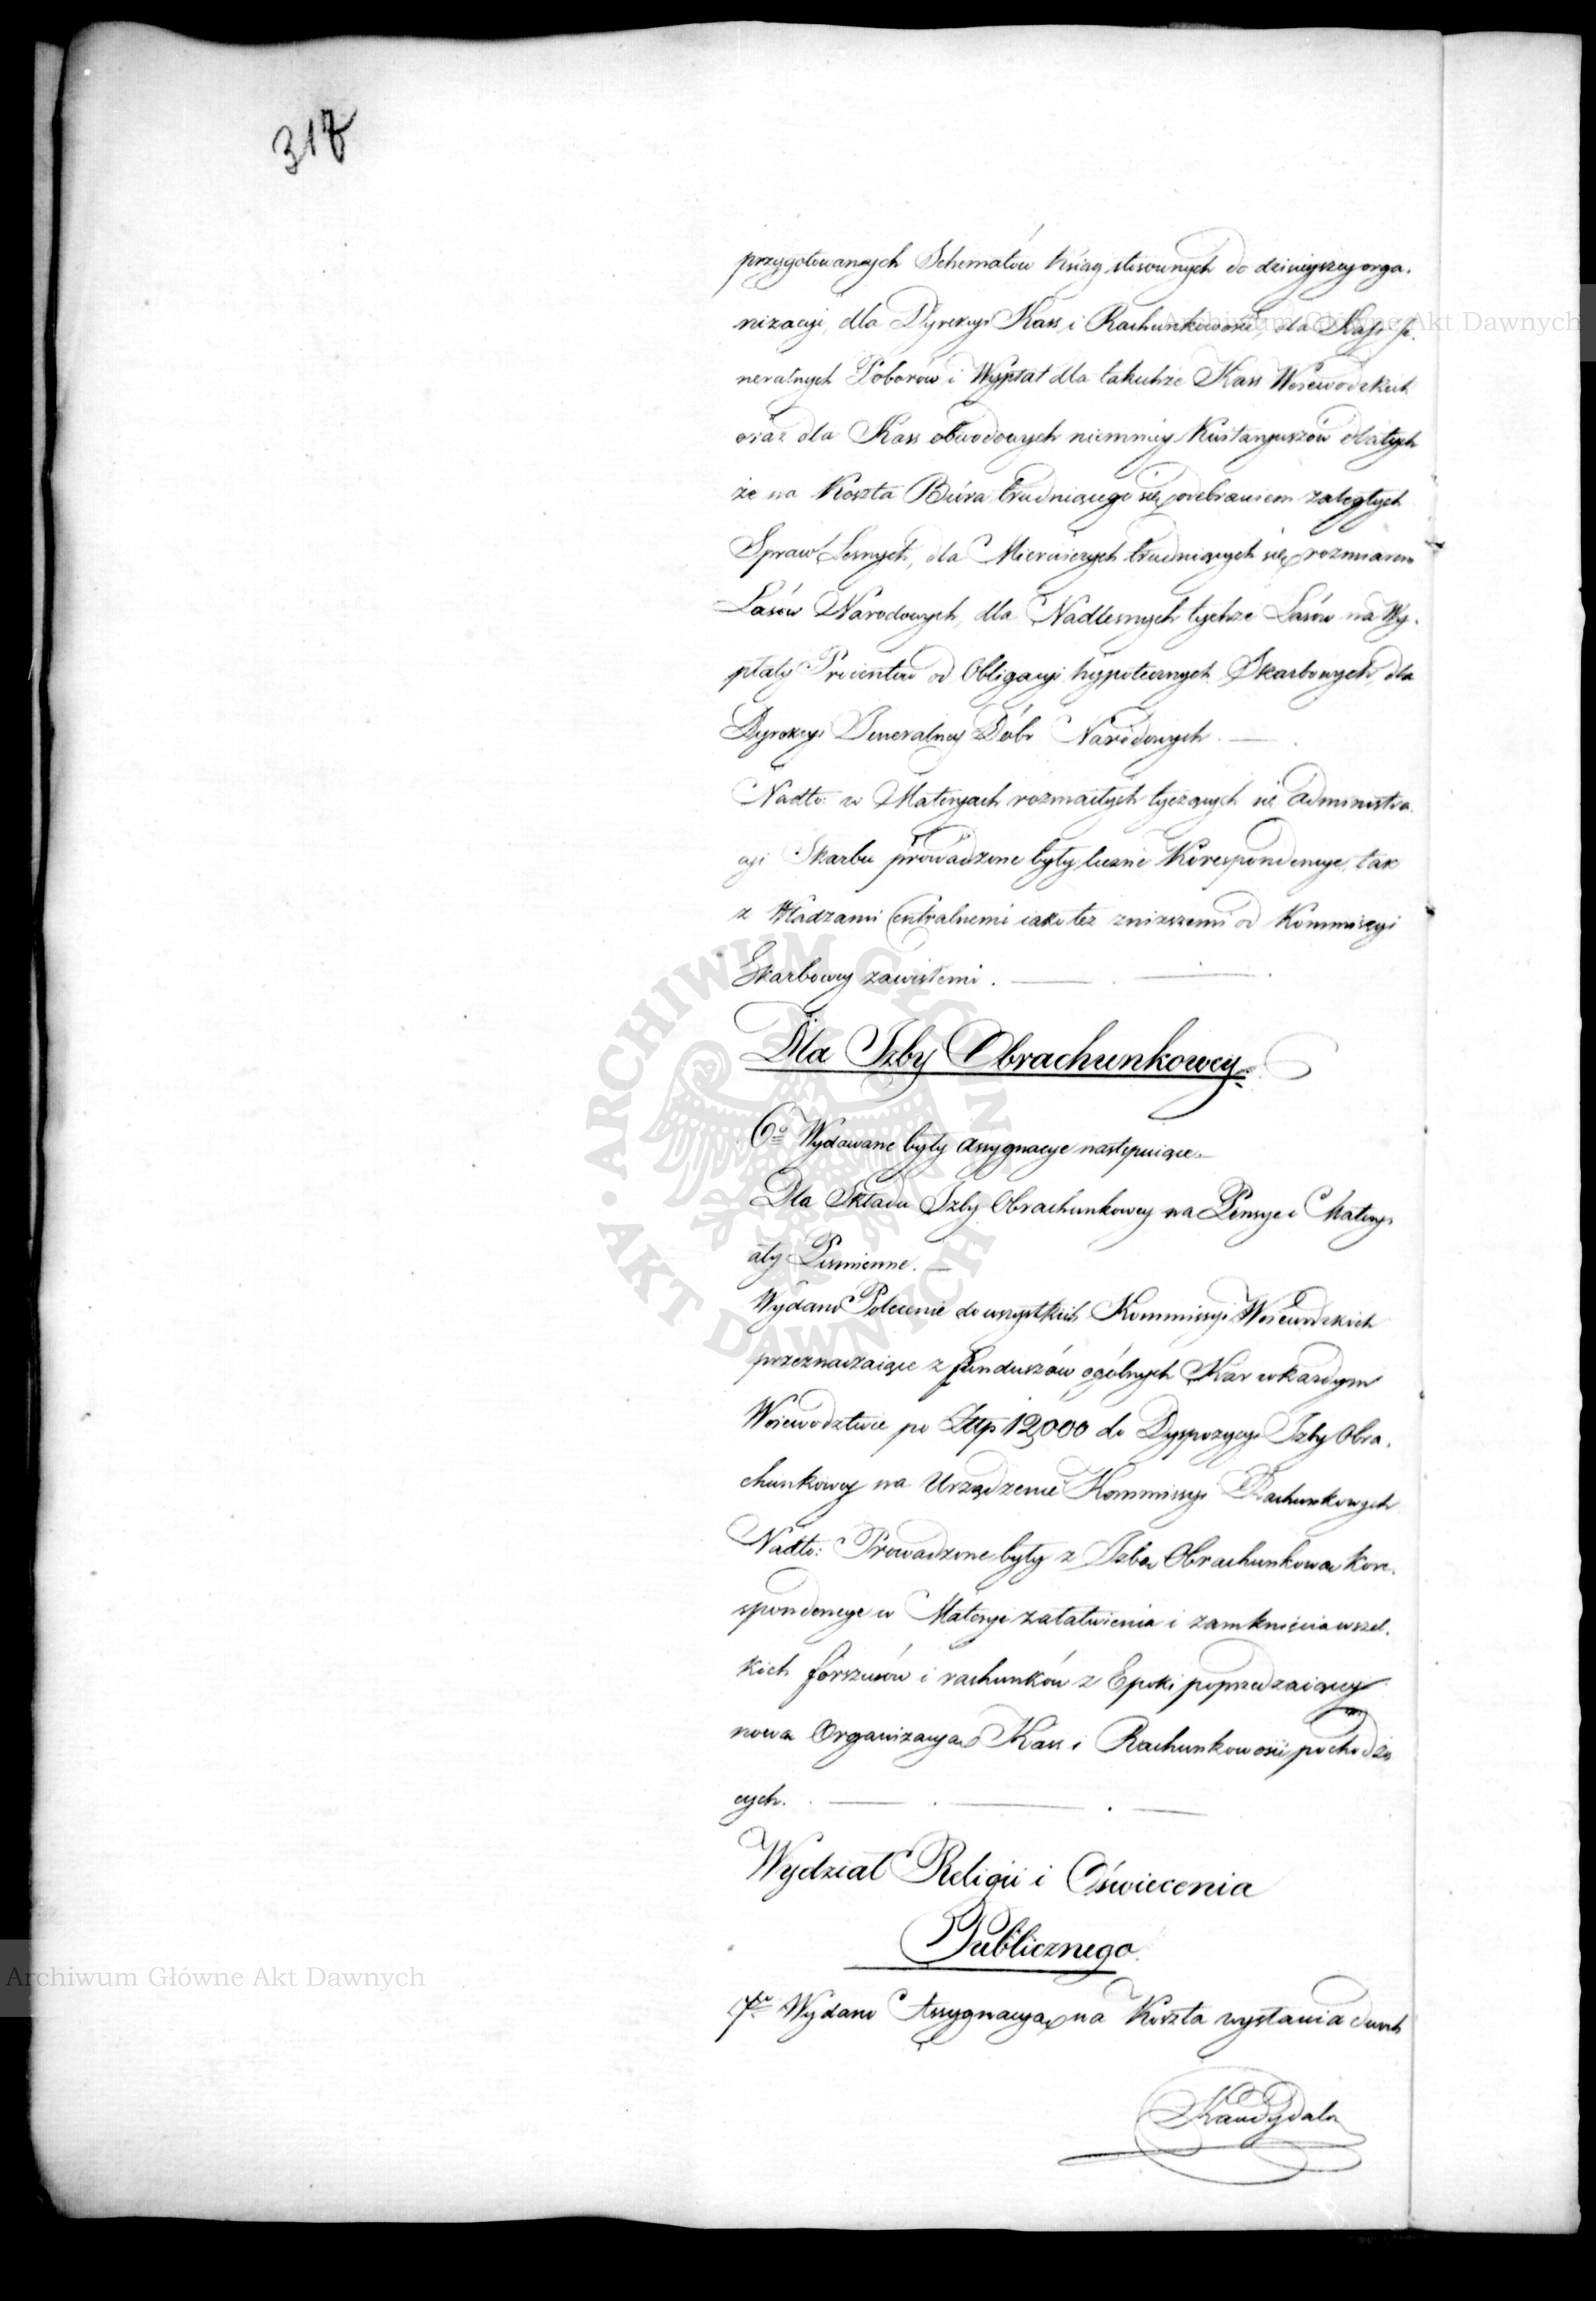 318
przygotowanych Schematów Ksiąg stosownych do dzisieyszey orga-
nizacyi, dla Dyrekcyi Kass i Rachunkowości, dla Kass Je-
neralnych Poborów i Wypłat dla takichże Kass Woiewodzkich
oraz dla Kass obwodowych niemniey Kwitaryuszów dla tych
że na Koszta Biura trudniącego się odebraniem zaległych
Spraw Leśnych, dla Mierniczych trudniących się rozmiarem
Lasów Narodowych, dla Nadleśnych tychże Lasów na Wy-
płaty Procentów od Obligacyi hypotecznych Skarbowych, dla
Dyrekcyi Jeneralney Dóbr Narodowych. —
Nadto: w Materyach rozmaitych tyczących się Administra-
cyi Skarbu prowadzone były liczne Korespondencye, tak
z Władzami Centralnemi iako też zniższemi od Kommissyi
Skarbowey zawisłemi. —
Dla Izby Obrachunkowey
6o Wydawane były Assygnacye następuiące.—
Dla Składu Izby Obrachunkowey na Pensye i Matery-
ały Piśmienne. —
Wydano Polecenie do wszystkich Kommissyi Woiewodzkich
przeznaczaiące z funduszów ogólnych Kar w każdym
Woiewodztwie po Złtp 12,000 do Dyspozycyi Izby Obra-
chunkowey na Urządzenie Kommissyi Rachunkowych
Nadto: Prowadzone były z Izbą Obrachunkową Kore-
spondencye w Materyi załatwienia i zamknięcia wszel-
kich forszusów i rachunków z Epoki poprzedzaiącey
nową Organizacyą Kass i Rachunkowości pochodzą
cych. —
Wydział Religii i Oświecenia
Publicznego.
7o Wydano Assygnacyą na Koszta wysłania dwóch
Kandydatów
Archiwum Główne Akt Dawnych
Archiwum Główne Akt Dawnych
ARCHIWUM GŁÓWNE AKT DAWNYCH